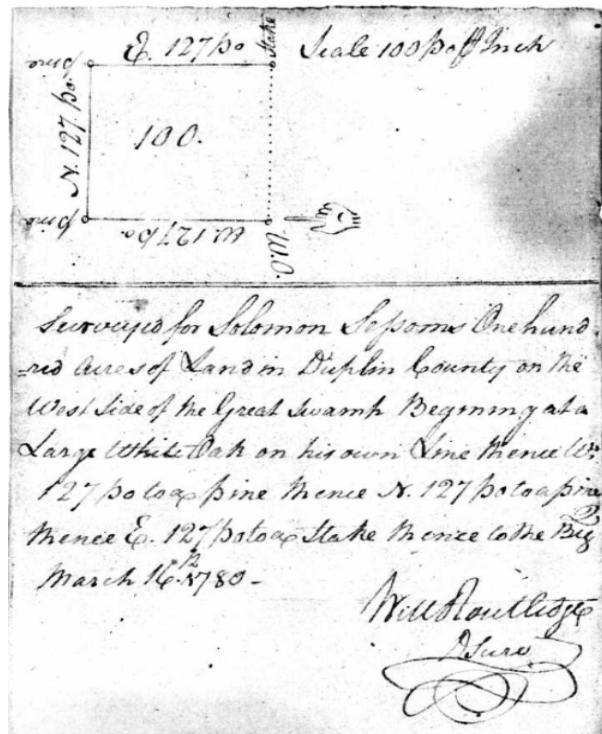 E. 127 po
Stake
Scale 100 po pr Inch
pine
N. 127. po.
100.
pine
W. 127 po.
W.O.
Surveyed for Solomon Sessoms One hund
=red Acres of Land in Duplin County on the
West side of the Great Swamp Begining at a
Large White Oak on his own Line thence Wt.
127 po to a pine thence N. 127 po to a pine
thence E. 127 po to a Stake thence to the Beg
March 16th. 1780 -
Will Routledge
D Surv